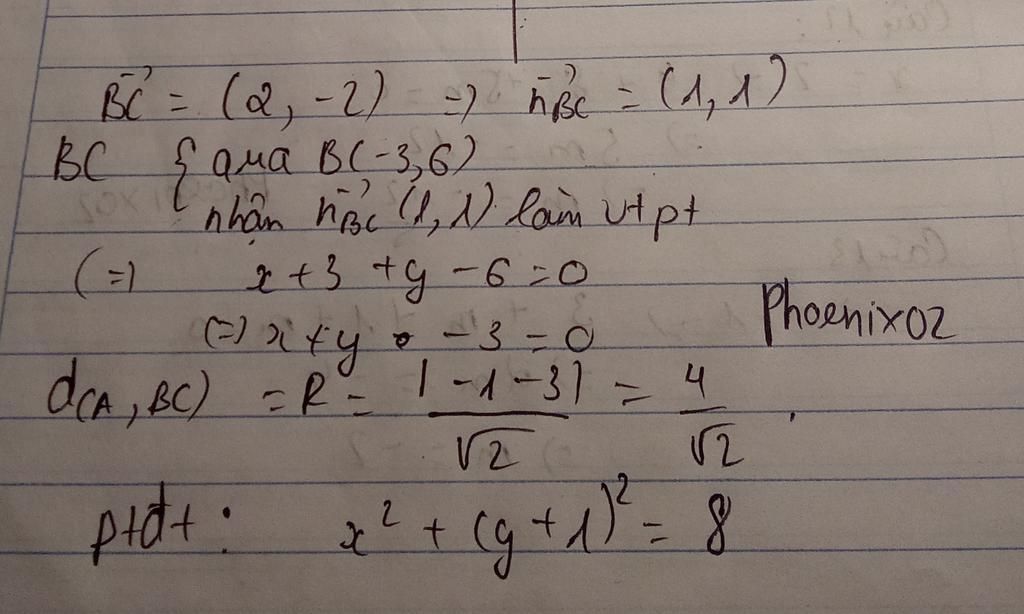 BC→ = (2, -2) => n→BC = (1, 1)
BC { qua B(-3,6)
nhận n→BC (1, 1) làm vtpt
(=) x + 3 + y - 6 = 0
(=) x + y - 3 = 0
Phoenix02
d(A, BC) = R = |-1-3|/√2 = 4/√2.
ptđt: x² + (y+1)² = 8